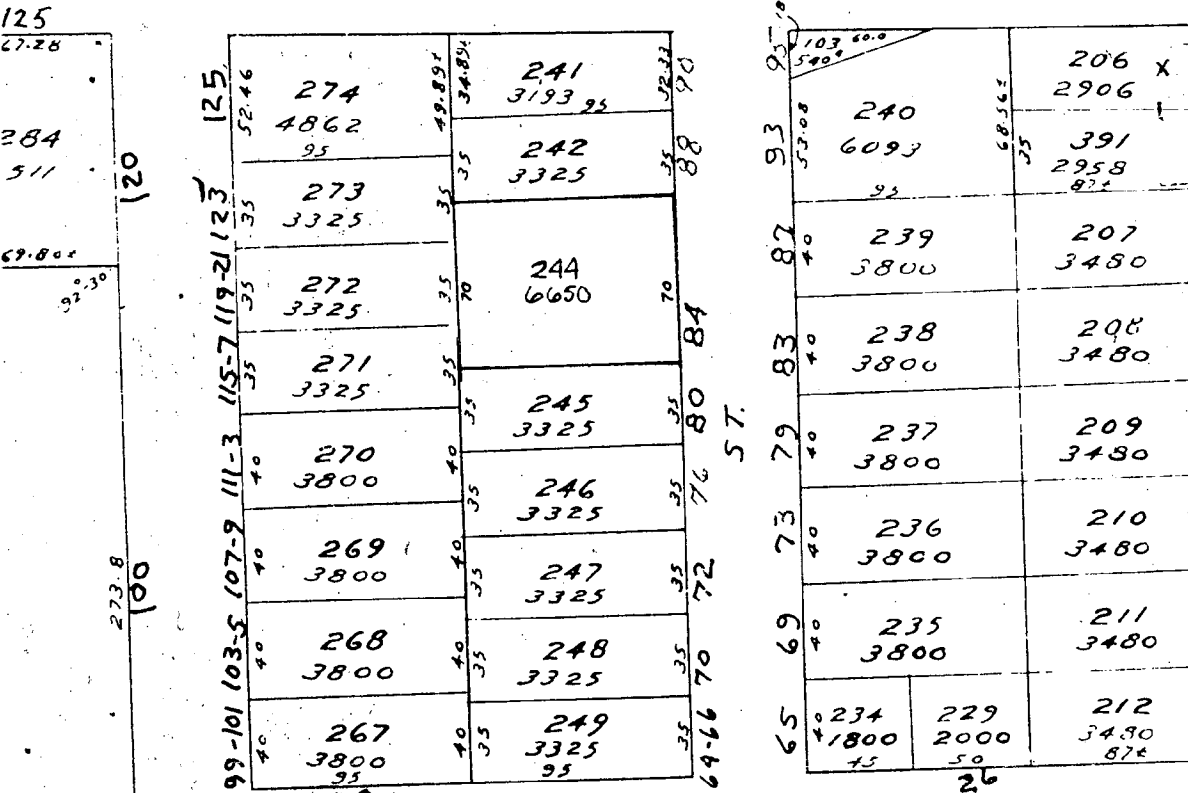 125
67.28
284
511
120
69.80±
92°-30'
273.8
100
125
52.46
274
4862
95
49.89±
123
35
273
3325
35
119-21
35
272
3325
35
115-7
35
271
3325
35
111-3
40
270
3800
40
107-9
40
269
3800
40
103-5
40
268
3800
40
99-101
40
267
3800
95
40
34.89±
241
3193
95
32.33
90
35
242
3325
35
88
70
244
6650
70
84
35
245
3325
35
80
35
246
3325
35
76
35
247
3325
35
72
35
248
3325
35
70
35
249
3325
95
35
64-66
ST.
95
18
103
60.0
540
93
53.08
240
6093
95
68.56±
206
2906
X
35
391
2958
87±
87
40
239
3800
207
3480
83
40
238
3800
208
3480
79
40
237
3800
209
3480
73
40
236
3800
210
3480
69
40
235
3800
211
3480
65
40
234
1800
45
229
2000
50
26
212
3480
87±